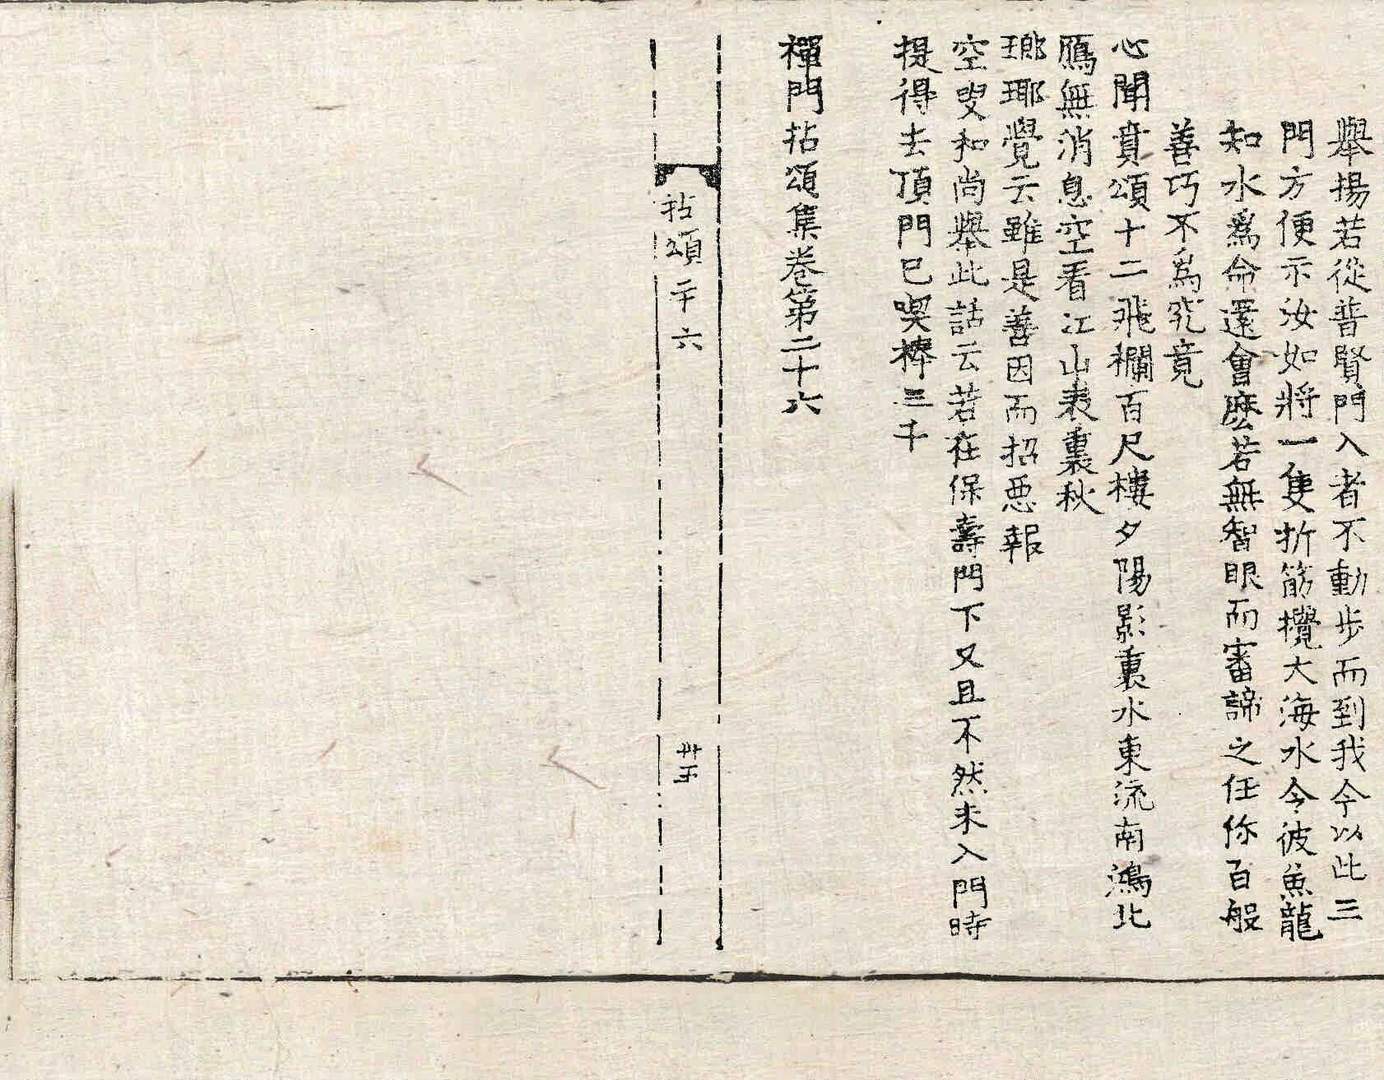 舉揚若從普賢門入者不動步而到我今以此三
門方便示汝如將一隻折筯攪大海水令彼魚龍
知水爲命還會麽若無智眼而審諦之任你百般
善巧不爲究竟
心聞賁頌十二飛欄百尺樓夕陽影裏水東流南鴻北
鴈無消息空看江山表裏秋
瑯瑘覺云雖是善因而招惡報
空叟和尚舉此話云若在保壽門下又且不然未入門時
提得去頂門已喫棒三千
禪門拈頌集卷第二十六
拈頌二十六
卅五